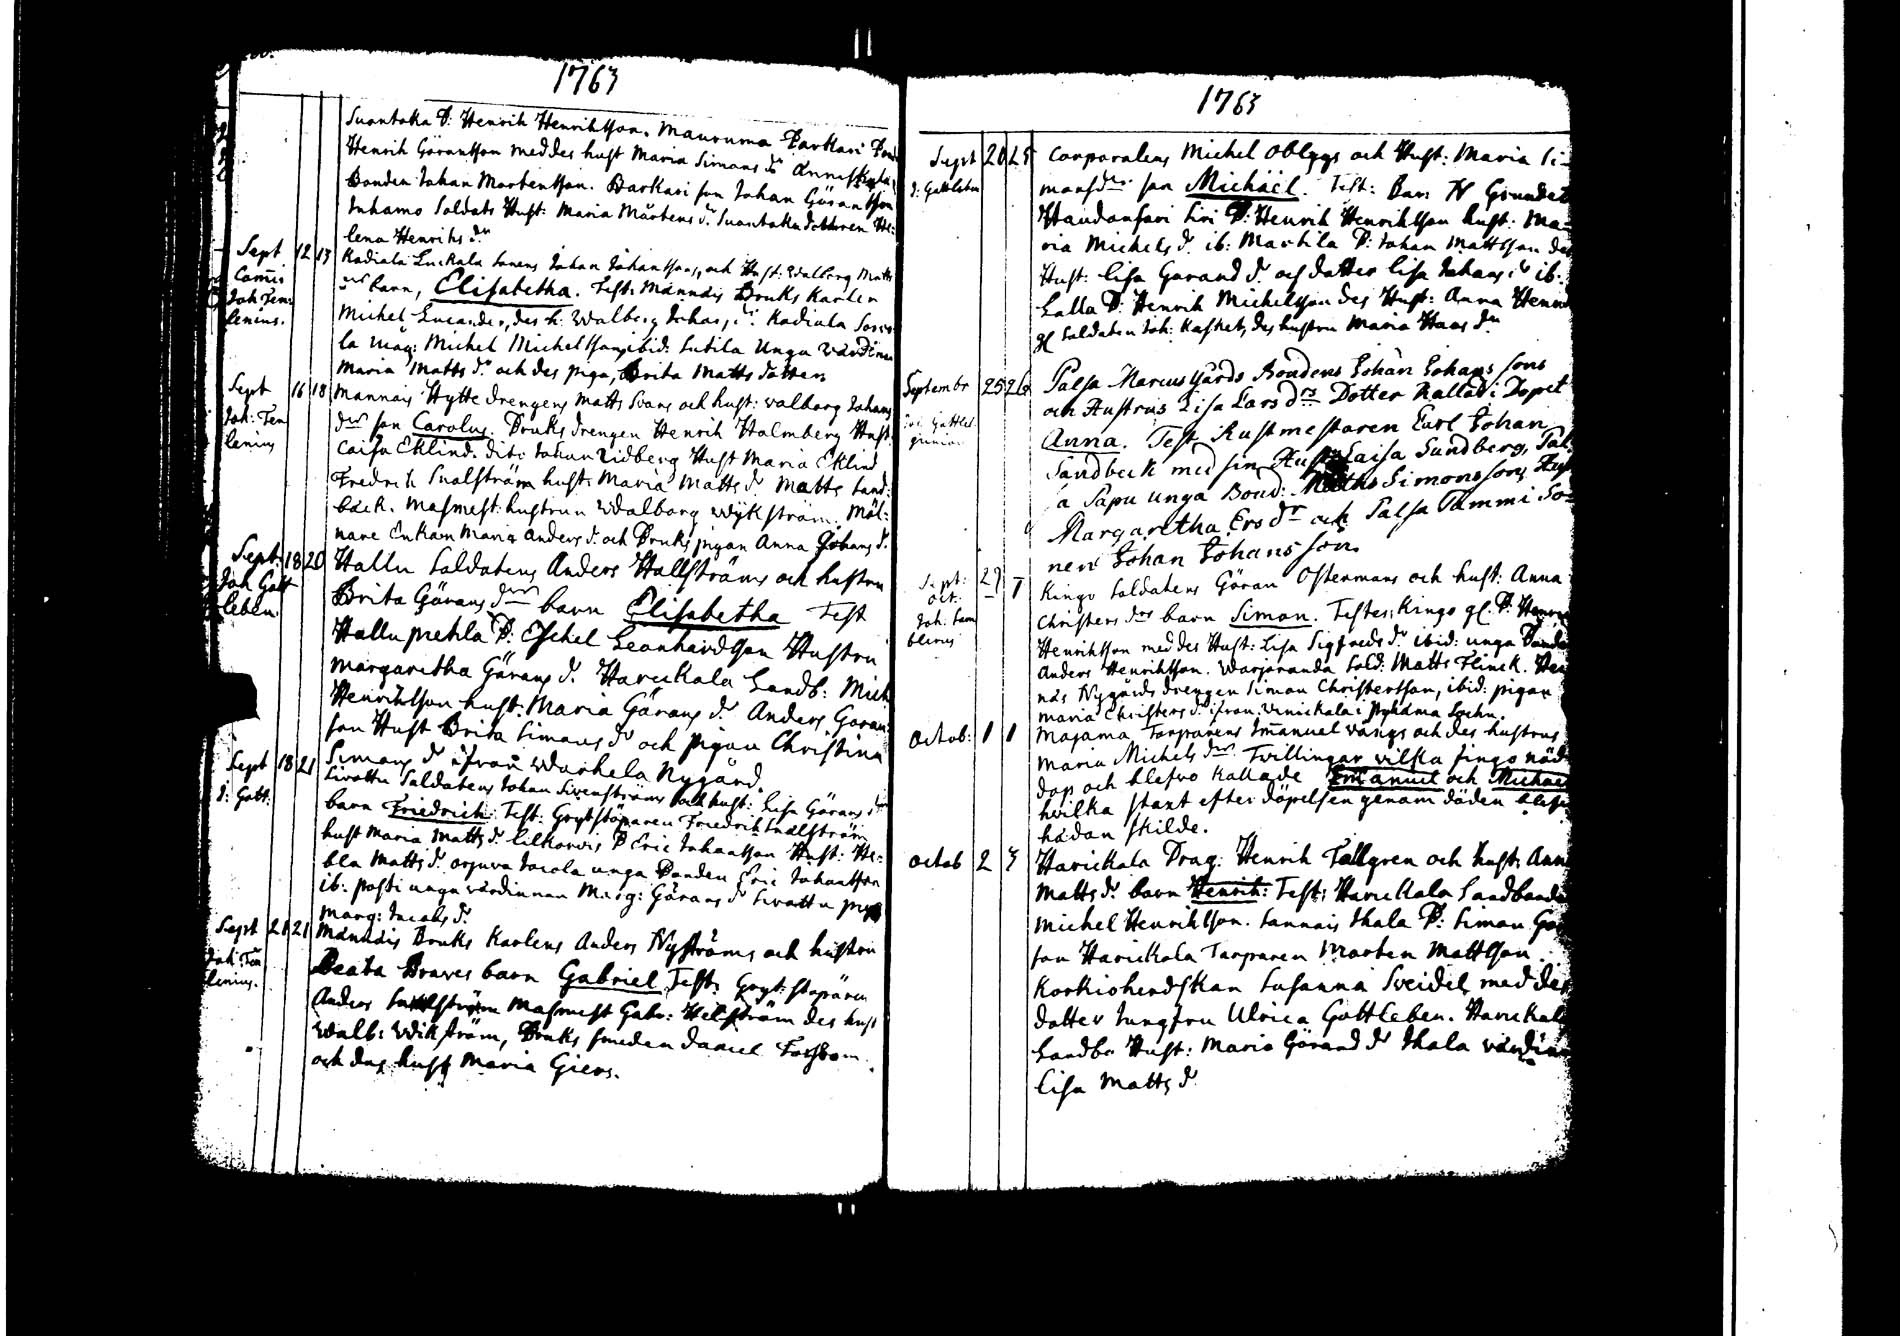 1763
Suontaka B: Henrik Henriksson. Mauruma Parkari Bond
Henrik Göransson med des hust Maria Simons dr Annis
Bonden Johan Mortensson. Barkari son Johan Göransson
Juhamo Soldats Hust: Maria Mårtens dr Suontaka dotteren He-
lena Henriks dr
Sept 12 13 Kadiala Luckala Sonens Johan Johanssons, och Hust: Walborg Matts
Com̄is
Joh Ten-
lenius.
drs barn, Elisabetha. Test: Mannäis Bruks Karlen
Michel Lucander, des h: Walborg Johans dr. Kadiala
la Måg: Michel Michelsson, ibid: Sutila Unga Värdinnan
Maria Matts dr och des piga, Brita Matts dotter
Sept 16 18 Mannäis Hytte drengens Matts Svans och hust: Walborg Johans
Joh: Ten
lenius
drs son Carolus. Bruks drengen Henrik Holmberg Hust.
Caisa Eklind. dito Johan Lidberg Hust Maria Eklind
Fredrik Svalström hust: Maria Matts dr Matts Sand-
bäck. Masmest: hustrun Walborg Wijkström. Möl-
nare Enkan Maria Anders dr. och Bruks pigan Anna Johans dr.
Sept: 18 20 Hallu Soldatens Anders Hallströms och hustru
Joh Gott
leben
Brita Görans drs barn Elisabetha Test
Hallu prehla B: Eschel Leonhardsson Hustru
Margaretha Görans dr. Haruckala Landb: Mich
Henriksson hust: Maria Görans dr. Anders Göran
son Hust Brita Simons dr och pigan Christina
Simons dr ifrån Warhela Nygård.
Sept 18 21 Sivattu Soldatens Johan Sirenströms och hust: Lisa Görans drs
J: Gott:
barn Friedrich: Test: Grytstöparen Friedrich Svalström
hust Maria Matts dr. lilkorvis B Eric Johansson Hust: He-
blu Matts dr. Jacola unga Bonden Eric Johansson
ib: posti unga värdinnan Marg: Görans dr Sivattu pig
Marg: Jacobs dr.
Sept 20 21 Mannäis Bruks Karlens Anders Nyströms och hustru
Joh: Ten
lenius.
Beata Braves barn Gabriel, Test: Gryt stöparen
Anders Svalström Masmest Gabr: Helström des hust
Walb: Wikström, Bruks smeden Daniel Forsbom.
och des hust Maria Giers.
1763
Sept 20 25 Corporalens Michel Oblygs och Hust: Maria Si-
J: Gottleben
monsdrs son Michäel. Test: Bar: N Grundel
Haudansari Siri B: Henrik Henriksson hust: Ma-
ria Michels dr ib: Martila B: Johan Mattsson des
Hust: Lisa Görand dr och dotter Lisa Johans dr ib:
Lalla B: Henrik Michelsson des Hust: Anna Henri
gl Soldaten Joh: Kasket, des hustru Maria Hans dr
Septembr 25 26 Palsa Marcusgårds Bondens Johan Johans sons
Joh: Gottleb
junior.
och Hustrus Lisa Lars drs Dotter Kallad i Dopet
Anna. Test. Rustmestaren Carl Johan
Sandbeck med sin Hustr Caisa Sundberg, Pal-
sa Papu unga Bond: Matths Simonssons Hust
Margaretha Ers dr och Palsa Tammi So-
nen Johan Johans son.
Sept: 29
Oct: – 1 Kingo Soldatens Göran Ostermans och hust: Anna
Joh: Tem
blenius
Christers drs barn Simon. Testes: Kingo gl. B: Henric
Henriksson med des Hust: Lisa Sigfreds dr ibid: unga Bonden
Anders Henriksson. Warjaranda Sold: Matts Flinck. Hen
näs Nygårds drengen Simon Christersson, ibid: pigan
Maria Christers dr. ifrån Vinickala i pyhäma Sochn.
Octob: 1 1 Majama Torparens Im̄anuel Vångs och des hustrus
Maria Michels drs. Tvillingar vilka fingo nöd
dop och blefvo kallade Em̄anuel och Michael
hvilka straxt efter döpelsen genom döden blefvo
hädan skilde.
Octob 2 3 Haruckala Drag: Henrik Fallgren och hust: Anna
Matts dr. barn Henrik: Test: Haruckala Landbonde
Michel Henriksson. Sannäis Ihala B: Simon Gör
son Haruckala Torparen Morten Mattsson.
Korkiohendskan Susanna Sveidel med des
dotter Jungfru Ulrica Gottleben. Haruckala
Landb: Hust: Maria Görand dr Ihala värdinn
Lisa Matts dr